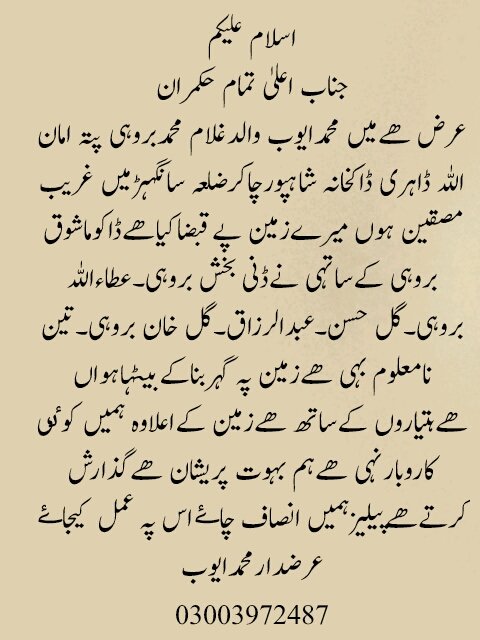 اسلام علیکم
جناب اعلیٰ تمام حکمران
عرض ھے میں محمد ایوب والد غلام محمد بروہی پتہ امان
اللہ ڈاہری ڈاکخانہ شاہپور چاکر ضلعہ سانگہڑ میں غریب
مصقین ہوں میرے زمین پے قبضا کیا ھے ڈاکو ماشوق
بروہی کے ساتہی نے ڈنی بخش بروہی۔عطاءاللہ
بروہی۔گل حسن۔عبدالرزاق۔گل خان بروہی۔تین
نامعلوم بہی ھے زمین پہ گہر بنا کے بیٹہا ہواں
ھے ہتیاروں کے ساتھ ھے زمین کے اعلاوہ ہمیں کوئی
کاروبار نہی ھے ہم بہوت پریشان ھے گذارش
کرتے ھے پیلیز ہمیں انصاف چائے اس پہ عمل کیجائے
عرضدار محمد ایوب
03003972487